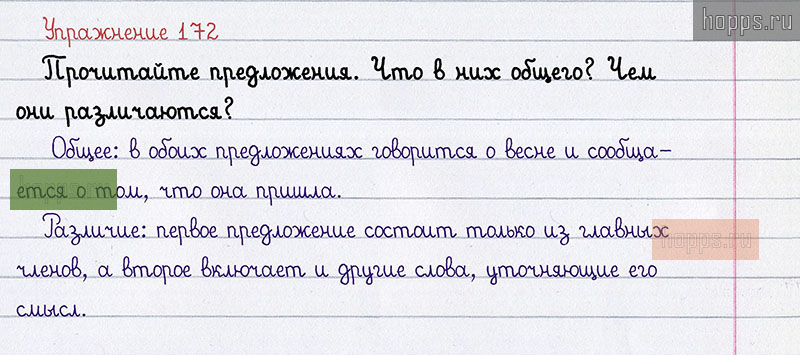 hopps.ru
Упражнение 172
Прочитайте предложения. Что в них общего? Чем
они различаются?
Общее: в обоих предложениях говорится о весне и сообща-
ется о том, что она пришла.
Различие: первое предложение состоит только из главных
hopps.ru
членов, а второе включает и другие слова, уточняющие его
смысл.